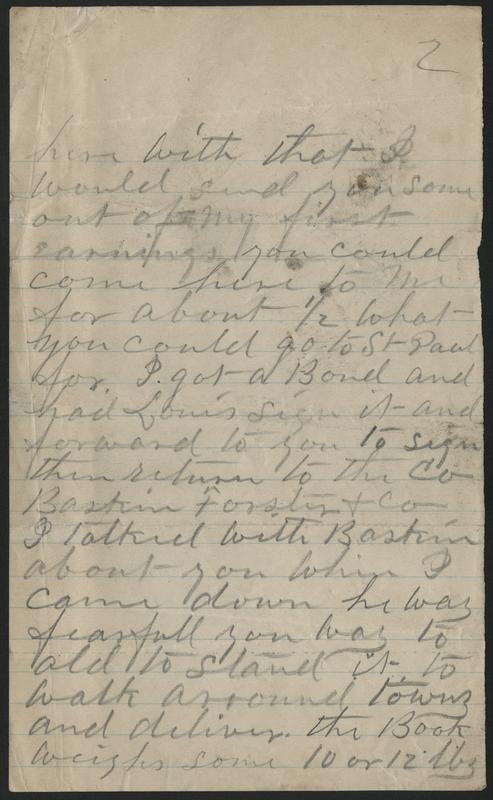 2
here with that I
would send you some
out of my first
earnings you could
come here to Me
for about 1/2 what
you could go to St Paul
for. I got a Bond and
had Louis sign it and
forward to you to sign
then return to the Co
Baskin Forster & Co
I talked with Baskin
about you when I
came down he way
fearfull you way to
old to stand it, to
walk arround towns
and deliver. the Book
weighs some 10 or 12 lbs